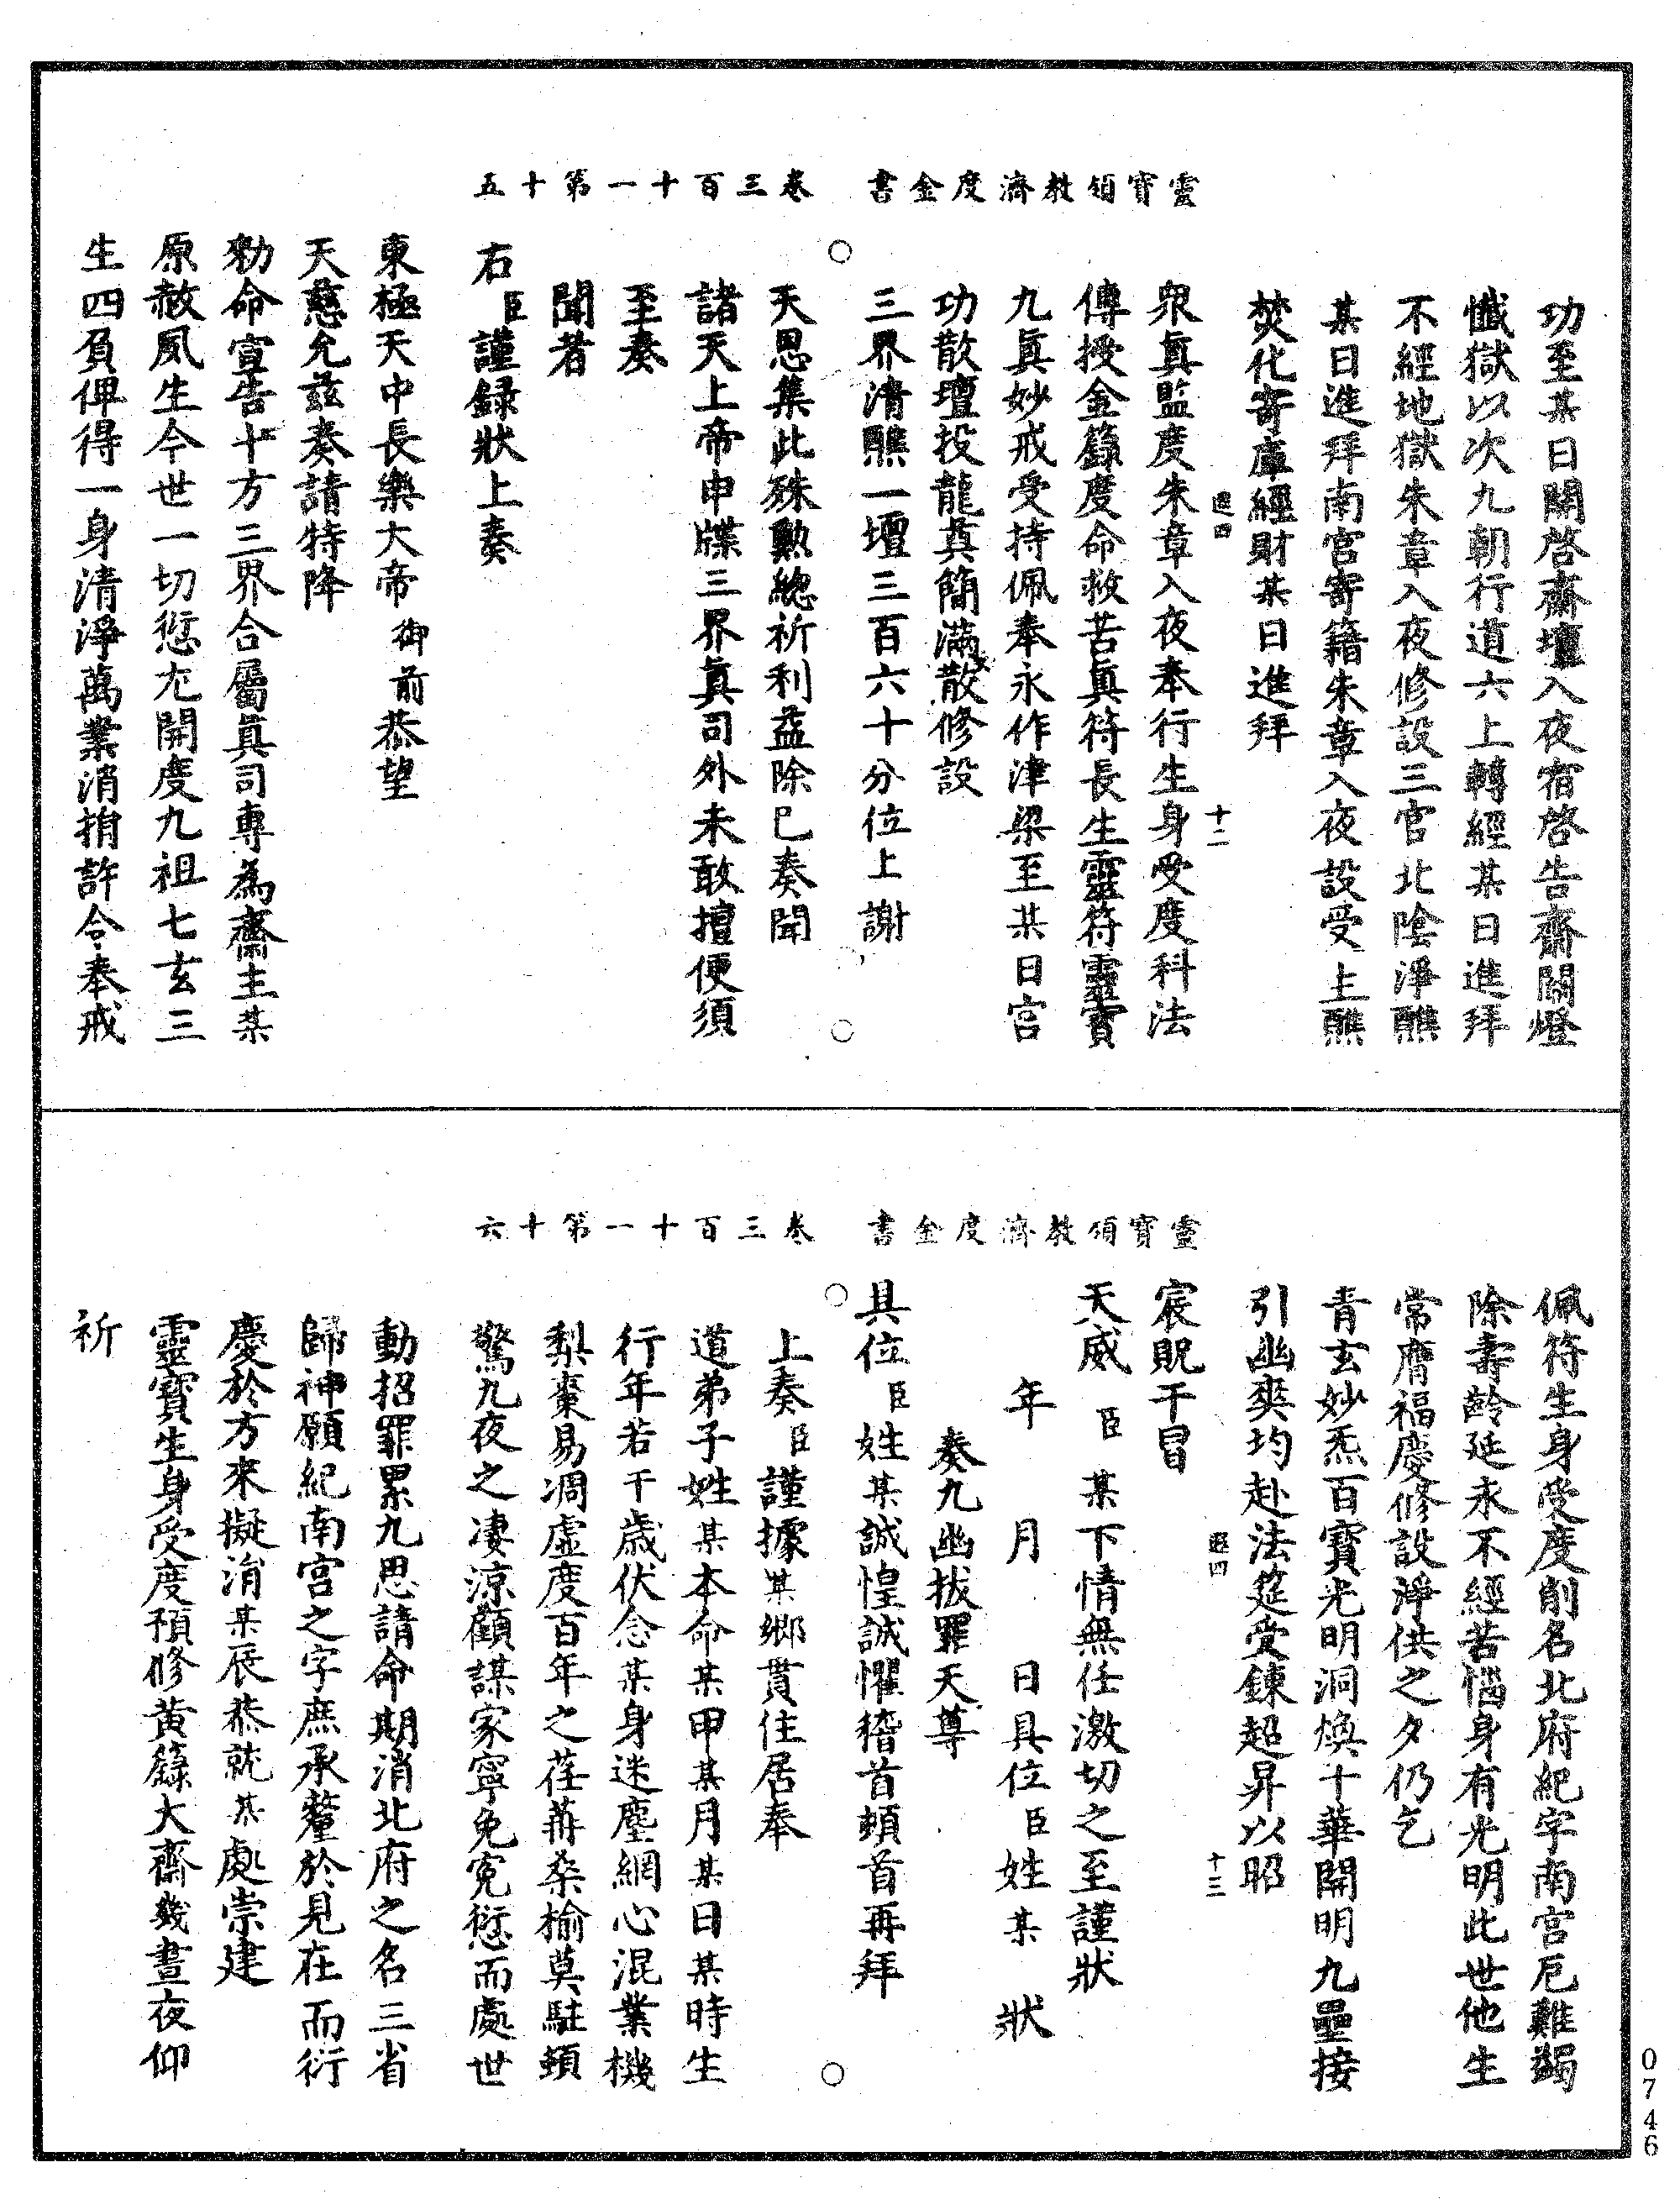 靈寶領教濟度金書　卷三百十一第十五
功至某日開啓齋壇入夜宿啓告齋關燈
懺獄以次九朝行道六上轉經某日進拜
不經地獄朱章入夜修設三官北陰淨醮
某日進拜南宮寄籍朱章入夜設受生醮
焚化寄庫經財某日進拜
十二
衆眞監度朱章入夜奉行生身受度科法
傳授金籙度命救苦眞符長生靈符靈寶
九眞妙戒受持佩奉永作津梁至某日宮
功散壇投龍奠簡滿散修設
三界清醮一壇三百六十分位上謝
天恩集此殊勲總祈利益除已奏聞
諸天上帝申牒三界眞司外未敢擅便須
至奏
聞者
右臣謹録狀上奏
東極天中長樂大帝御前恭望
天慈允兹奏請特降
勑命宣告十方三界合屬眞司專為齋主某
原赦夙生今世一切愆尤開度九祖七玄三
生四負俾得一身清淨萬業消捐許令奉戒
靈寶領教濟度金書　卷三百十一第十六
佩符生身受度削名北府紀字南宮厄難蠲
除壽齡延永不經苦惱身有光明此世他生
常膺福慶修設淨供之夕仍乞
青玄妙炁百寶光明洞煥十華開明九壘接
引幽爽均赴法筵受鍊超昇以昭
十三
宸貺干冒
天威臣某下情無任激切之至謹狀
年　月　日具位臣姓某　狀
奏九幽拔罪天尊
具位臣姓某誠惶誠懼稽首頓首再拜
上奏臣謹據某鄉貫住居奉
道弟子姓某本命某甲某月某日某時生
行年若干歲伏念某身迷塵網心混業機
梨棗易凋虛度百年之荏苒桑榆莫駐頓
驚九夜之凄涼顧謀家寧免寃愆而處世
動招罪累九思請命期消北府之名三省
歸神願紀南宮之字庶承釐於見在而衍
慶於方來擬涓某辰恭就某處崇建
靈寶生身受度預修黃籙大齋幾晝夜仰
祈
0746